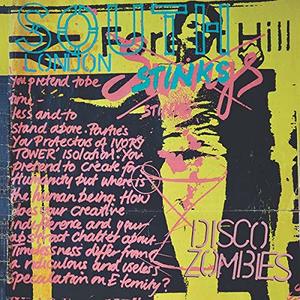 SOUTH
Hill
LONDON
STINKS
You pretend to be
time
less and to
stand above. Parties
You Protectors of IVORY
TOWER isolation. You
pretend to create for
Humanity but where is
the human being. How
does your creative
indifference and your
abstract chatter about
Timelessness differ from
a ridiculous and useless
speculation on Eternity?
DISCO
ZOMBIES